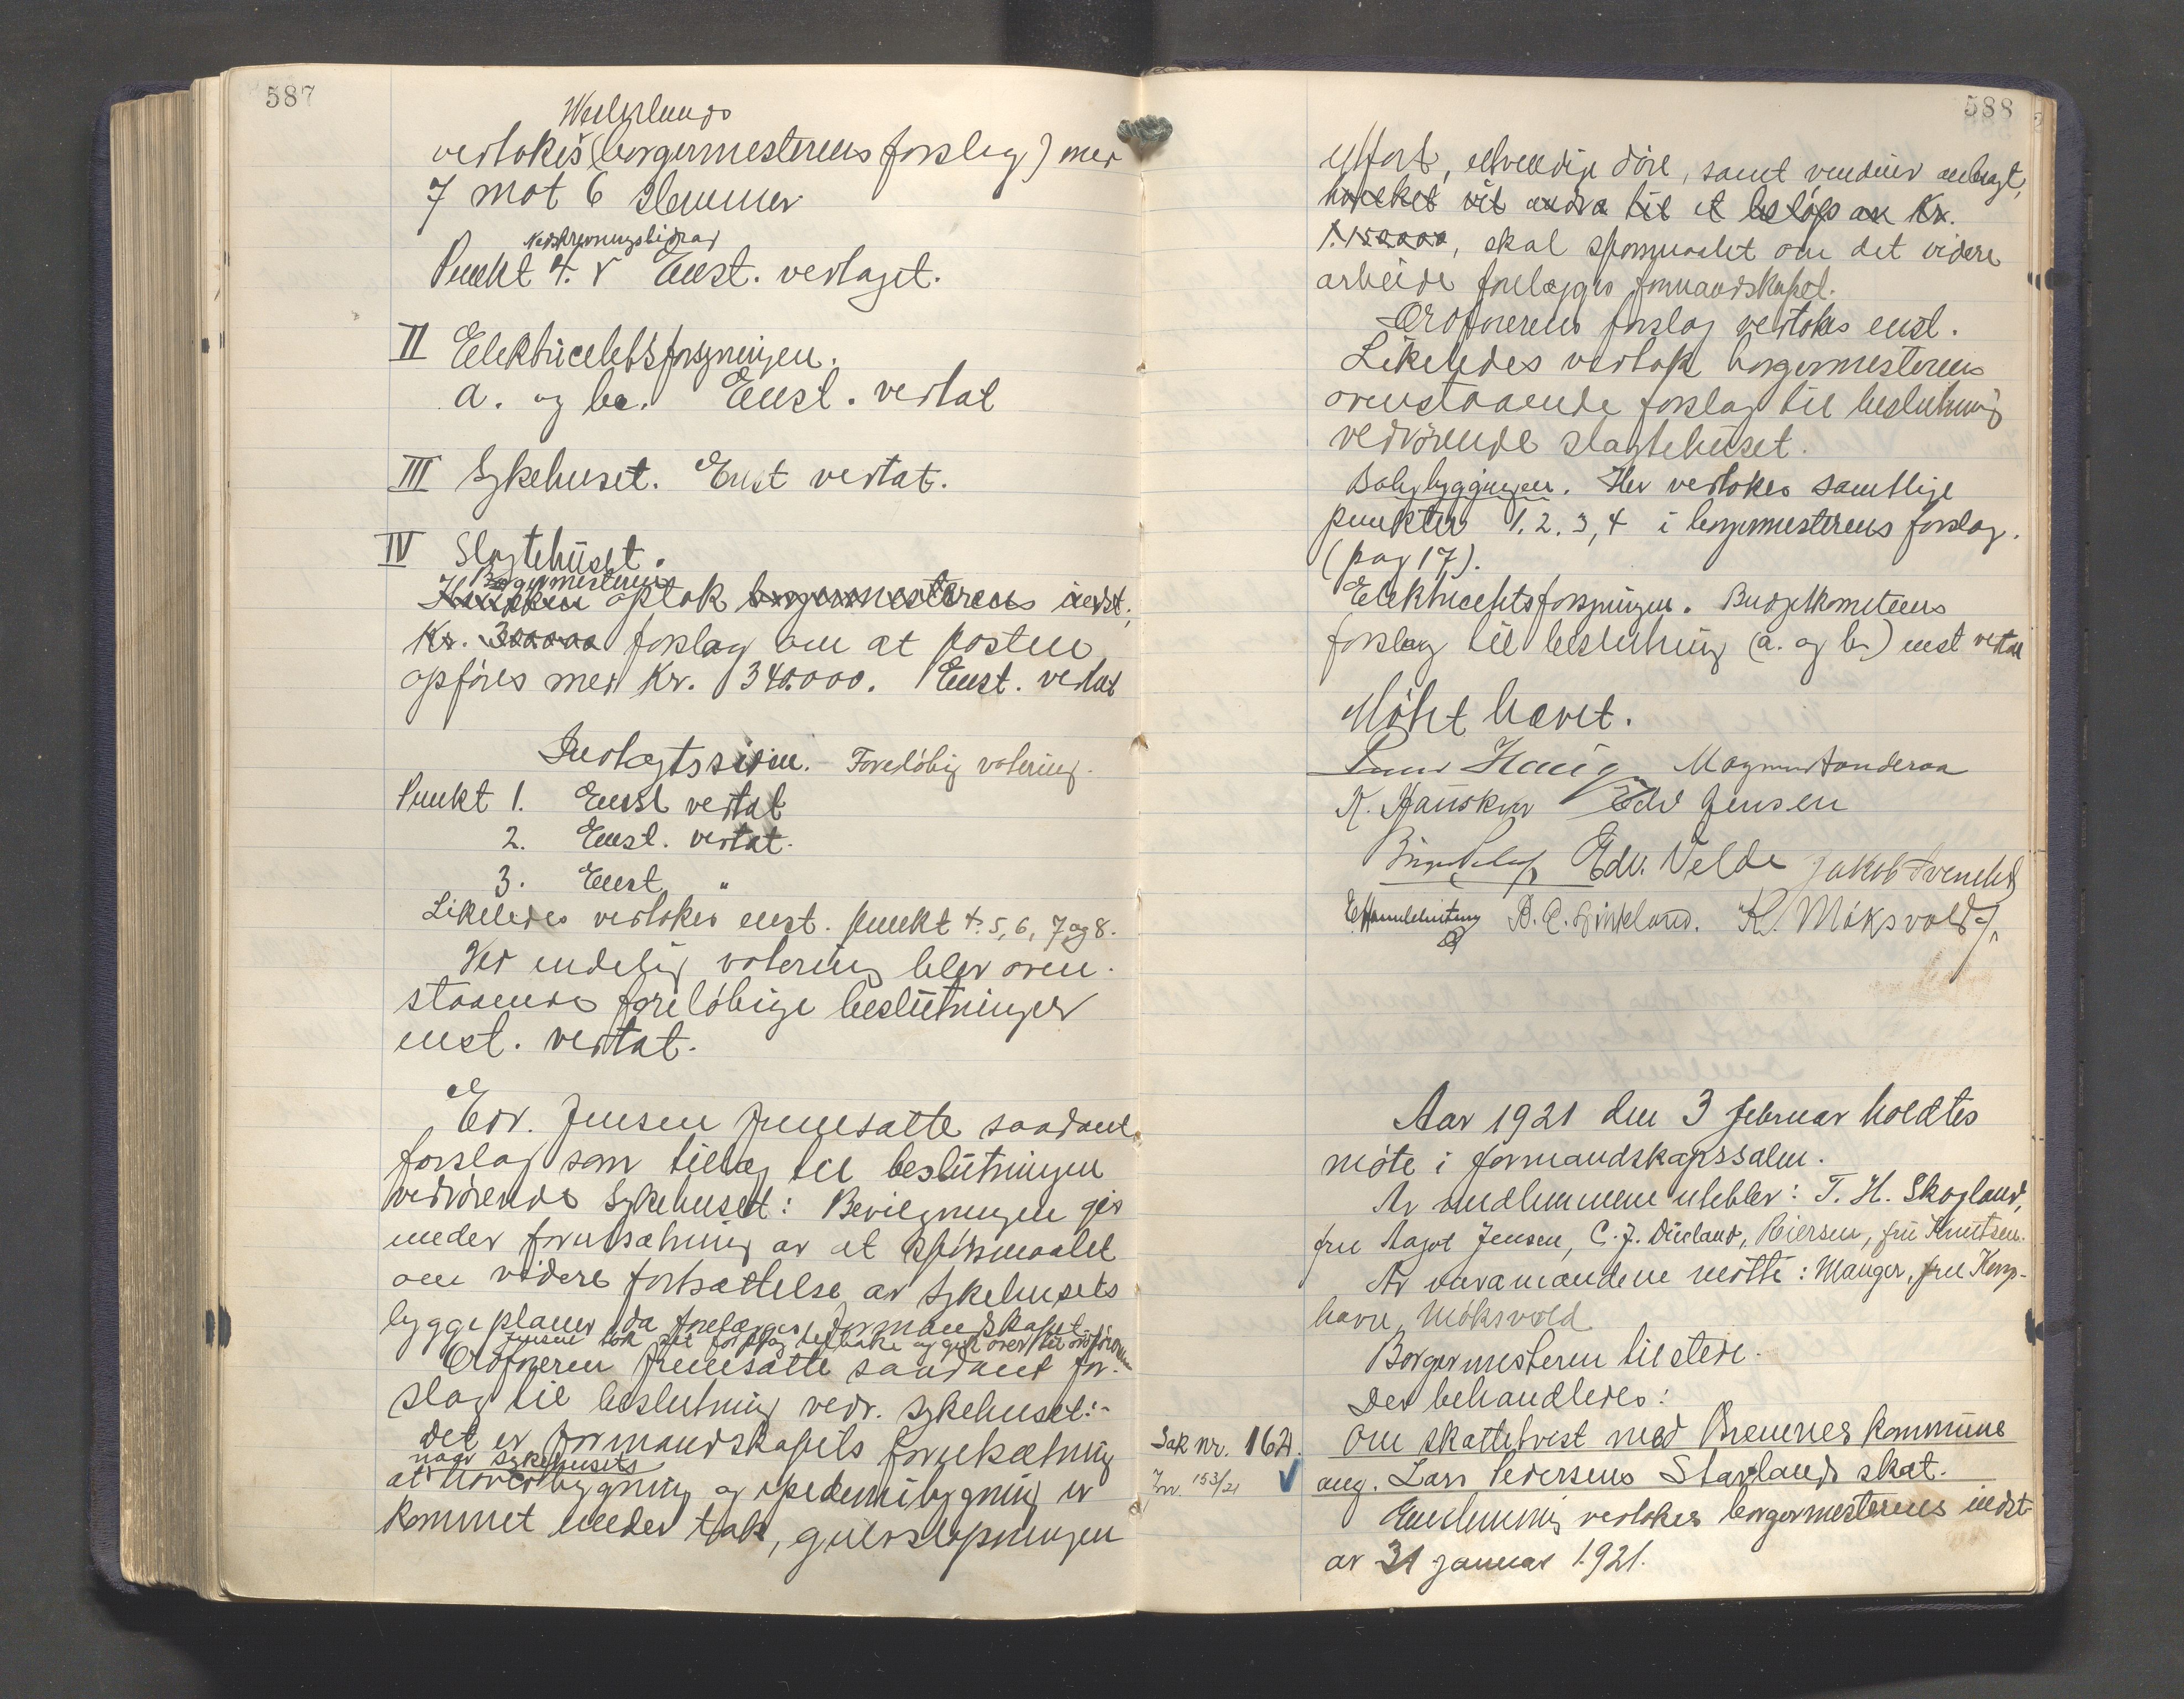 587
vedtokes (borgermesterens forslag) med
7 mot 6 stemmer
Nedskrivningsbidrag
Punkt 4. V Enst. vedtaget.
II Elektricitetsforsyningen.
a. og b. Enst. vedtat
III Sykehuset. Enst vedtat.
IV Slagtehuset.
Borgermesteren
optok borgermesterens indst.
Kr. 300000 forslag om at posten
opføres med Kr. 340.000. Enst. vedtat
Indtægtssiden. Foreløbig votering.
Punkt 1. Enst vedtat
2. Enst. vedtat.
3. Enst "
Likeledes vedtokes enst. punkt 4. 5, 6, 7 og 8.
Ved endelig votering blev oven-
staaende foreløbige beslutninger
enst. vedtat.
Edv. Jensen fremsatte saadant
forslag som tillæg til beslutningen
vedrørende Sykehuset: Bevilgningen gis
under forutsætning av at spørsmaalet
om videre fortsættelse av Sykehusets
byggeplaner da forelægges formandskapet.
Jensen tok sit forslag tilbake og gik over til ordførerens
Ordføreren fremsatte saadant for-
slag til beslutning vedr. sykehuset:-
Det er formandskapets forutsætning
naar Sykehusets
at hovedbygning og epidemibygning er
kommet under tak, gulvstøpningen
588
utført, utvendige døre, samt vinduer anbragt,
hvilket vil andra til et beløp av Kr.
1.150000, skal spørsmaalet om det videre
arbeide forelægges formandskapet.
Ordførerens forslag vedtokes enst.
Likeledes vedtok borgermesterens
ovenstaaende forslag til beslutning
vedrørende slagtehuset.
Boligbyggingen. Her vedtokes samtlige
punkter 1. 2. 3, 4 i borgermesterens forslag.
(pag 17).
Elektricitetsforsyningen. Budgetkomiteens
forslag til beslutning (a. og b.) enst vedtat
Møtet hævet.
K. Hauskov Edv Jensen
Edv. Velde
K. Môksvold
Aar 1921 den 3 februar holdtes
møte i formandskapssalen.
Av medlemmene uteblev: T. H. Skogland,
fru Aagot Jensen, C. J. Dueland, Reiersen, fru Knutsen.
Av varamændene møtte: Manger, fru Kop-
havn, Môksvold
Borgermesteren tilstede.
Der behandledes:
Sak nr. 162. Om skattetvist med Bremnes kommune
Jnr. 153/21 ang. Lars Pedersens Stavlands skat.
Enstemmig vedtokes borgermesterens indst.
av 31 januar 1921.